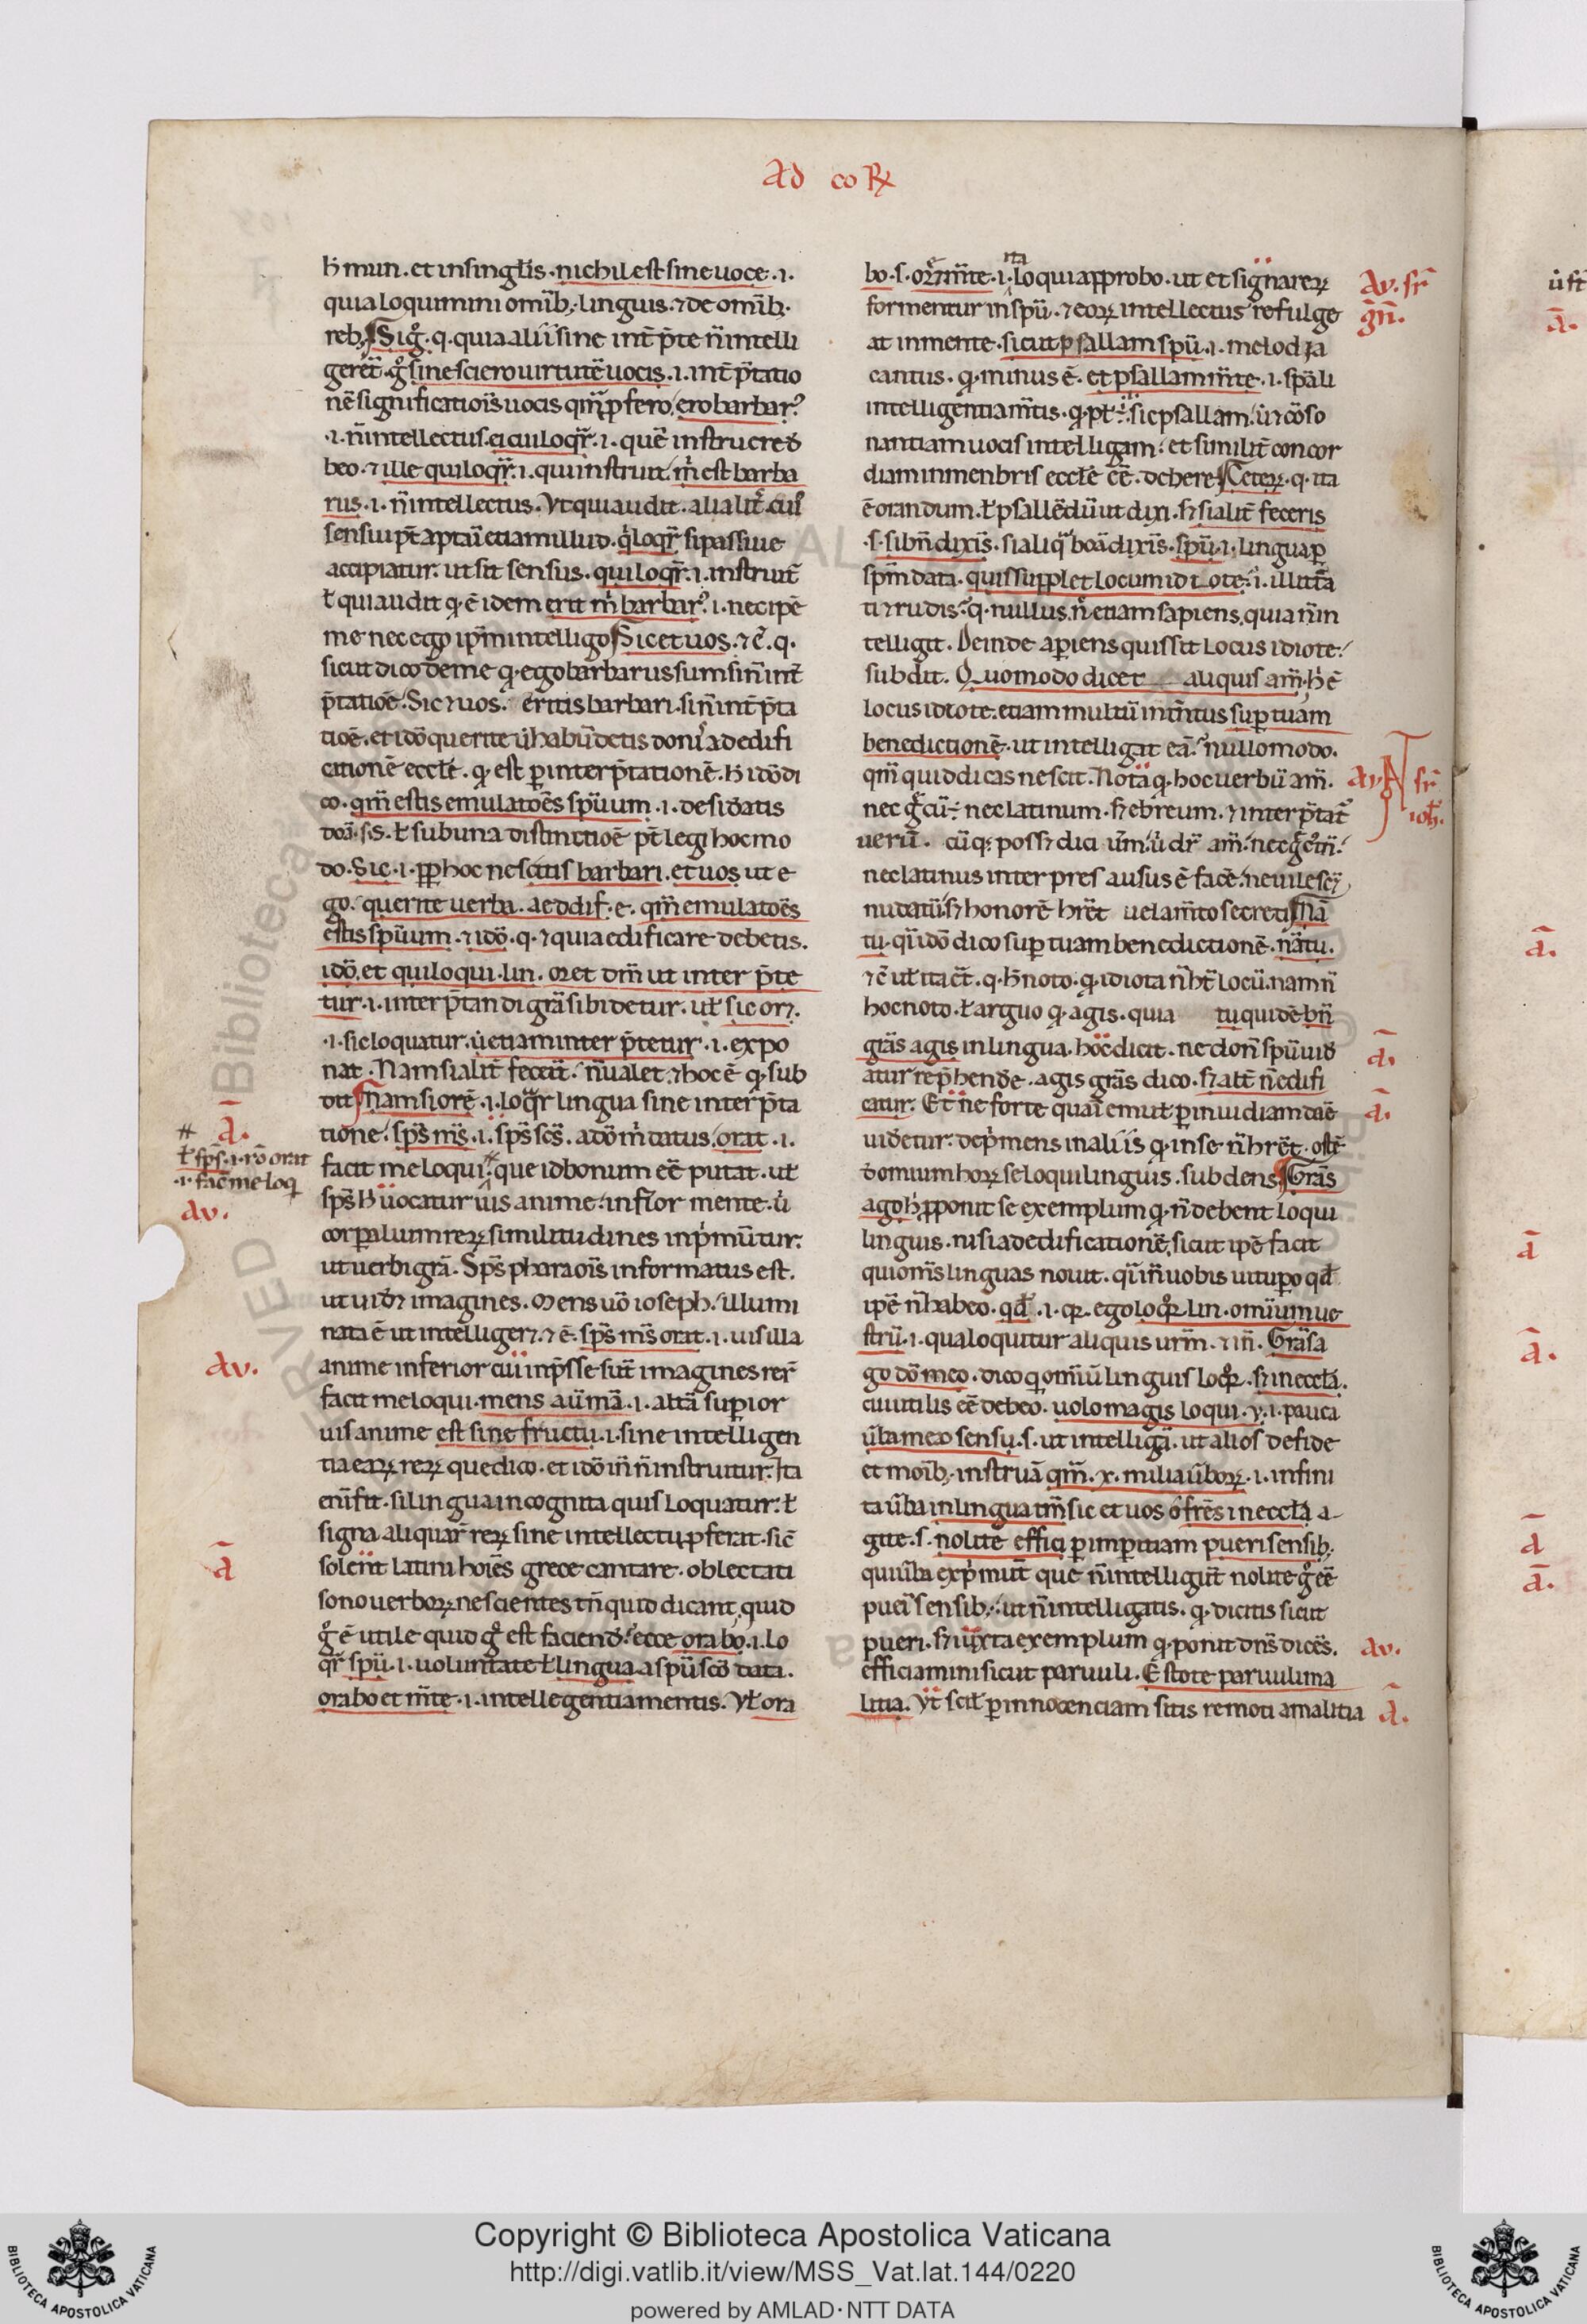 Ad coR
h̄ mun. et in singtis. nichil est sine uoce. i.
quia loquimini omīb; linguis. ⁊ de omīb;
reb; Si g̊. q. quia alii sine int̄ p̄te n̄ intelli
gerēt. g̊ si nesciero uirtutē uocis. i. int̄ p̄tatio
nē significatiōis uocis qm̄ p fero, ero barbar᾿
.i. n̄ intellectus. ei cui loqr̄. i. quē instruere d
beo. ⁊ ille qui loqr̄. i. qui instruit m̄ est barba
rus. i. n̄ intellectus. Vt qui audit. alia lit̄. cui᾿
sensui pt̄ aptari etiam illud. q̄ loqr̄ si passiue
accipiatur. ut sit sensus. qui loqr̄. i. instruit̄
ł qui audit q. ē idem erit m̄ barbar᾿. i. nec ipē
me nec ego ip̄m intelligo Sic et uos. ⁊ c̄. q.
sicut dico de me q. ego barbarus sum sin̄ int̄
p̄tatiōe. Sic ⁊ uos. eritis barbari. sin̄ int̄ p̄ta
tiōe. et idō querite ut habūdetis donis ad edifi
cationē eccłe. q. est p interp̄tationē. h̄ idō di
co. qm̄ estis emulatoēs spūum. i. desidatis
doā. s.s. ł sub una distinctiōe pt̄ legi hoc mo
do. Sic. i. pp hoc ne scitis barbari. et uos ut e
go. querite uerba. ae ddif. e. qm̄ emulatoēs
estis spūum. ⁊ idō. q. ⁊ quia edificare debetis.
idō. et qui loqui. lin. oret dm̄ ut inter p̄te
tur. i. inter p̄tandi grā sibi detur. uł sic or⁊.
.i. sic loquatur. ut etiam inter p̄tetur. i. expo
nat. Nam si alit̄ fecit̄. n̄ ualet. ⁊ hoc ē q. sub
dit Nam si orē. i. loqr̄ lingua sine interp̄ta
tione. sps̄ ms̄. i. sps̄ scs̄. a dō m̄ datus, orat. i.
facit me loqui. que id bonum eē putat. uł
sps̄ h̄ uocatur uis anime. inf̄ior mente. u̇
corpalium rer⁊ similitudines inp̄mūtur.
ut uerbi grā. Sps̄ pharaōis informatus est.
ut uid⁊ imagines. Mens uō ioseph. illumi
nata ē ut intelliger⁊. ⁊ ē. sps̄ ms̄ orat. i. uis illa
anime inferior cui inp̄sse sūt imagines rer̄
facit me loqui. mens aū mā. i. altā supior
uis anime est sine fructu. i. sine intelligen
tia ear⁊ rer⁊ que dico. et idō in̄ n̄ instruitur. Ita
enī fit. si lingua incognita quis loquatur. ł
signa aliquar̄ rer⁊ sine intellectu p ferat. sic̄
solent latini hoiēs grece cantare. oblectati
sono uerbor⁊ nescientes tn̄ quid dicant. quid
g̊ ē utile quid g̊ est faciend᾿. ecce orabo. i. lo
qr̄ spū. i. uoluntate ł lingua a spū scō data.
orabo et m̄te. i. intellegentia mentis. Vł ora
#
ł sps̄. i. rō orat
.i. fac̄ me loq
ā.
av.
av.
ā
bo. s. or⁊ m̄te. i. ita lo quia p probo. ut et signa rer⁊
formentur in spū. ⁊ eor⁊ intellectus refulge
at in mente. sicut psallam spū. i. melodia
cantus. q. minus ē. et psallam m̄te. i. spāli
intelligentia m̄tis. q. pł. sic psallam. ut cōso
nantiam uocis intelligam. et similit̄ concor
diam in menbris eccłe eē. debere Ceter⁊. q. ita
ē orandum. ł psallēdū ut dixi. s⁊ si alit̄ feceris
.s. si bn̄ dixis̄. si aliq᾿ boā dixis̄. spū. i. lingua p
spm̄ data. quis supplet locum idiote. i. illitt̄a
ti ⁊ rudis. q. nullus. n̄ etiam sapiens. quia n̄ in
telligit. Deinde apiens quis sit locus idiote.
subdit. Quomodo dicet aliquis am̄. h̄ ē
locus idiote. etiam multū intn̄tus sup tuam
benedictionē. ut intelligat eā. nullo modo.
qm̄ quid dicas nescit. Nota q. hoc uerbū am̄.
nec g̊cū. nec latinum. s⁊ ebreum. ⁊ interp̄tat᾿
uerū. cūq; poss⁊ dici um̄. u̇ dr̄ am̄. nec g̊c᾿ in̄.
nec latinus interpres ausus ē face. ne uilesc⁊
nudatū. s⁊ honorē hrēt uelam̄to secreti Nā
tu. quidō dico sup tuam benedictionē. nā tu.
⁊ c̄ uł ita c̄t. q. h̄ noto. q. idiota n̄ ht̄ locū. nam n̄
hoc noto. ł arguo q. agis. quia tu quidē bn̄
grās agis in lingua. hoc dicit. ne don̄ spū uid
atur rep̄hende. agis grās dico. s⁊ alt̄ n̄ edifi
catur. Et ne forte quasi emuł p inuidiam daē
uidetur. dep̄mens in aliis q. in se n̄ hrēt. ostē
d omnium hor⁊ se loqui linguis. subdens Grās
ago h̄ pponit se exemplum q. n̄ debent loqui
linguis. nisi ad edificationē. sicut ipē facit
qui om̄s linguas nouit. q. in̄ uobis uitupo qd̄
ipē n̄ habeo. qd̄. i. qr. ego loqr. lin. omniūm ue
strū. i. qua loquitur aliquis urm̄. ⁊ in̄. Grās a
go dō meo. dico q. omniū linguis loqr. s⁊ in eccła.
cui utilis eē debeo. uolo magis loqui. v. i. pauca
ūba meo sensu. s. ut intelligā. ut alios de fide
et morib; instruā qm̄. x. milia ūbor⁊. i. infini
ta ūba in lingua tm̄ sic et uos o frēs in eccła a-
gite. s. nolite effici p impitiam pueri sensib;
qui ūba exp̄mūt que n̄ intelligūt nolite g̊ eē
pueri sensib; ut n̄ intelligatis. q. dicitis sicut
pueri. s⁊ iuxta exemplum q. ponit dns̄ dicēs.
efficiamini sicut paruuli. Estote paruuli ma
litia. Vt scił p innocenciam sitis remoti a malitia
Av. sr̄
gn̄.
av. sr̄
ioh̄.
ā.
ā.
av.
ā.
Copyright © Biblioteca Apostolica Vaticana
http://digi.vatlib.it/view/MSS_Vat.lat.144/0220
powered by AMLAD·NTT DATA
BIBLIOTECA APOSTOLICA VATICANA
BIBLIOTECA APOSTOLICA VATICANA